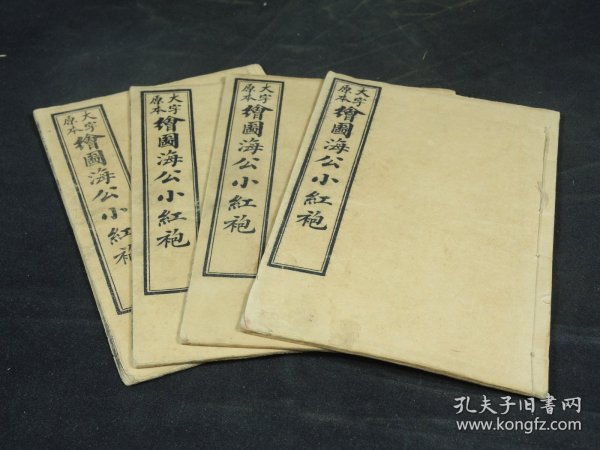 大字
原本
繪圖海公小紅袍
大字
原本
繪圖海公小紅袍
大字
原本
繪圖海公小紅袍
大字
原本
繪圖海公小紅袍
孔夫子旧書网
www.kongfz.com